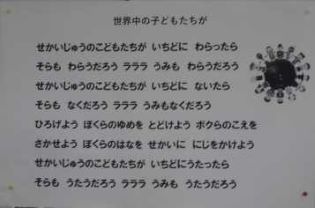 世界中の子どもたちが
せかいじゅうのこどもたちが いちどに わらったら
そらも わらうだろう ラララ うみも わらうだろう
せかいじゅうのこどもたちが いちどに ないたら
そらも なくだろう ラララ うみもなくだろう
ひろげよう ぼくらのゆめを とどけよう ボクらのこえを
さかせよう ぼくらのはなを せかいに にじをかけよう
せかいじゅうのこどもたちが いちどにうたったら
そらも うたうだろう ラララ うみも うたうだろう